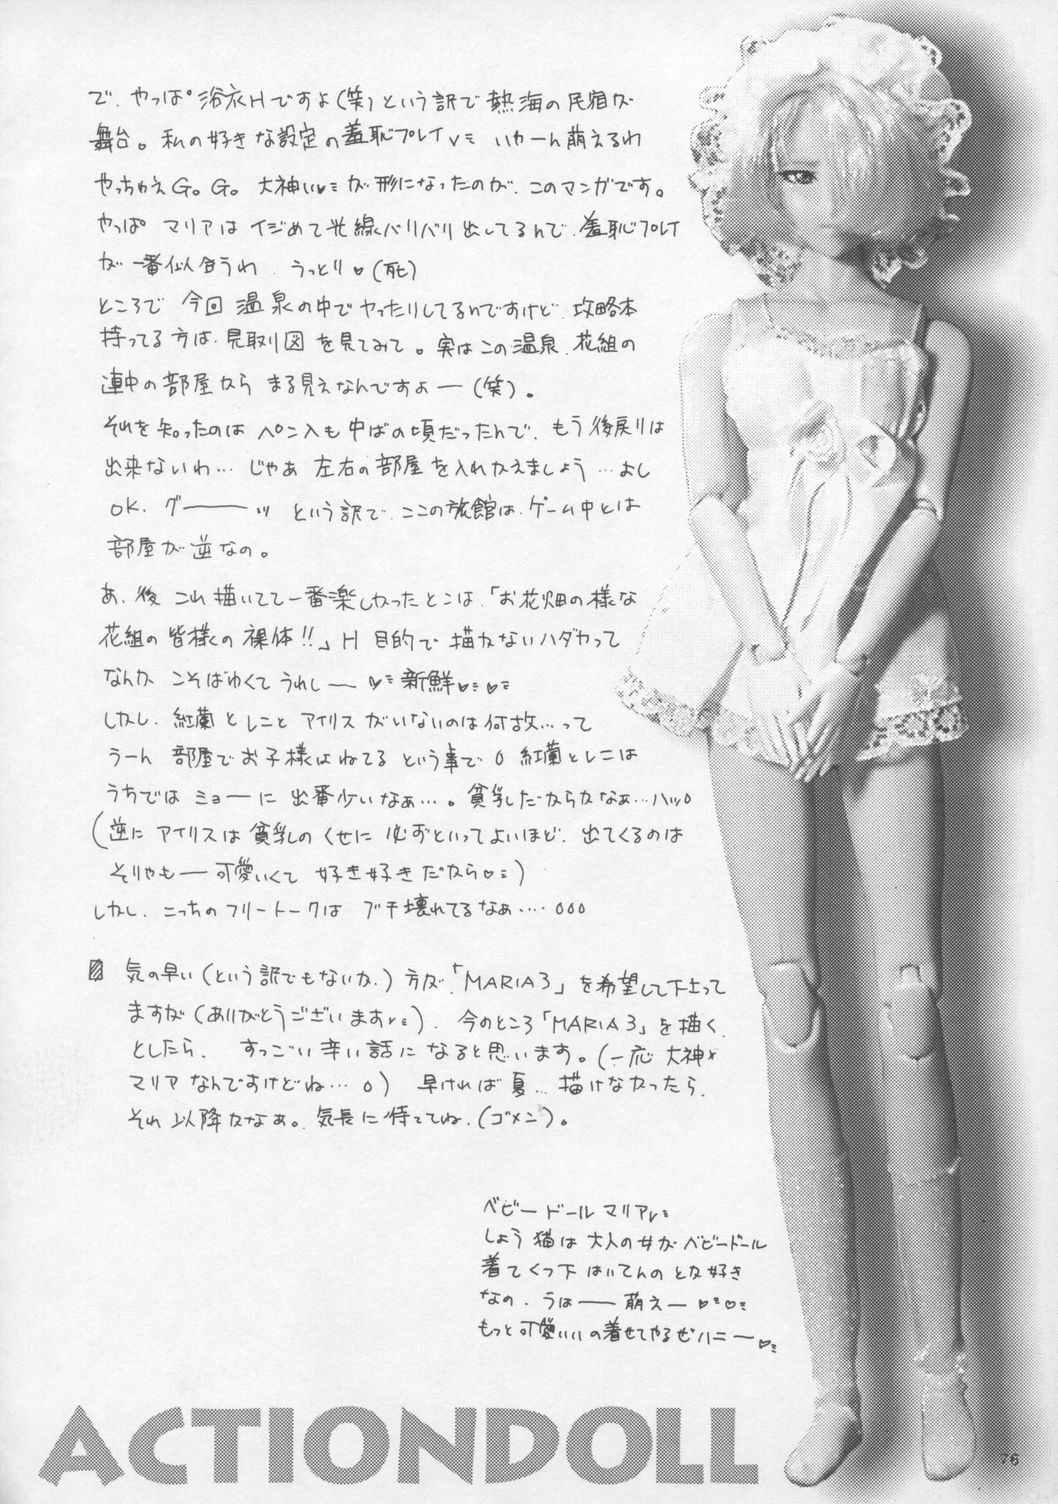 で、やっぱ浴衣Hですよ(笑)という訳で熱海の民宿が
舞台。私の好きな設定の羞恥プレイv いやーん萌えるわ
やっちゃえGo.Go. 大神い♡が形になったのが、このマンガです。
やっぱ マリアはイジめて光線バリバリ出してるんで、羞恥プレイ
が一番似合うわ、うっとり♡(死)
ところで 今回 温泉の中でヤったりしてるんですけど、攻略本
持ってる方は、見取り図を見てみて。実はこの温泉、花組の
連中の部屋から まる見えなんですよー(笑)。
それを知ったのは ペン入も中ばの頃だったんで、もう後戻りは
出来ないわ…じゃあ 左右の部屋を入れかえましょう…よし
OK、グーーッ という訳で、ここの旅館は、ゲーム中とは
部屋が逆なの。
あ、後 これ描いてて一番楽しかったとこは、「お花畑の様な
花組の皆様の裸体!!」H目的で描かないハダカって
なんか こそばゆくてうれしー♡新鮮♡♡
しかし、紅蘭とレニとアイリスがいないのは何故…って
うーん 部屋でお子様はねてる という事で。紅蘭とレニは
うちでは ミョーに出番少いなぁ…。貧乳だからかなぁ…ハッ。
(逆にアイリスは貧乳のくせに 必ずといってよいほど、出てくるのは
そりゃもー可愛いくて 好き好きだから♡)
しかし、こっちのフリートークは ブチ壊れてるなぁ……。。。
気の早い(という訳でもないか、)方が「MARIA3」を希望して下さって
ますが(ありがとうございますv)、今のところ「MARIA3」を描く
としたら、すっごい辛い話になると思います。(一応 大神×
マリアなんですけどね…。) 早ければ夏…描けなかったら、
それ以降かなぁ。気長に待ててね、(ゴメン)。
ベビードールマリアv
しょう猫は大人の女がベビードール
着てくつ下はいてんのとか好き
なの、うはー萌えー♡♡
もっと可愛いいの着せてやるぜハニー♡
ACTIONDOLL
76